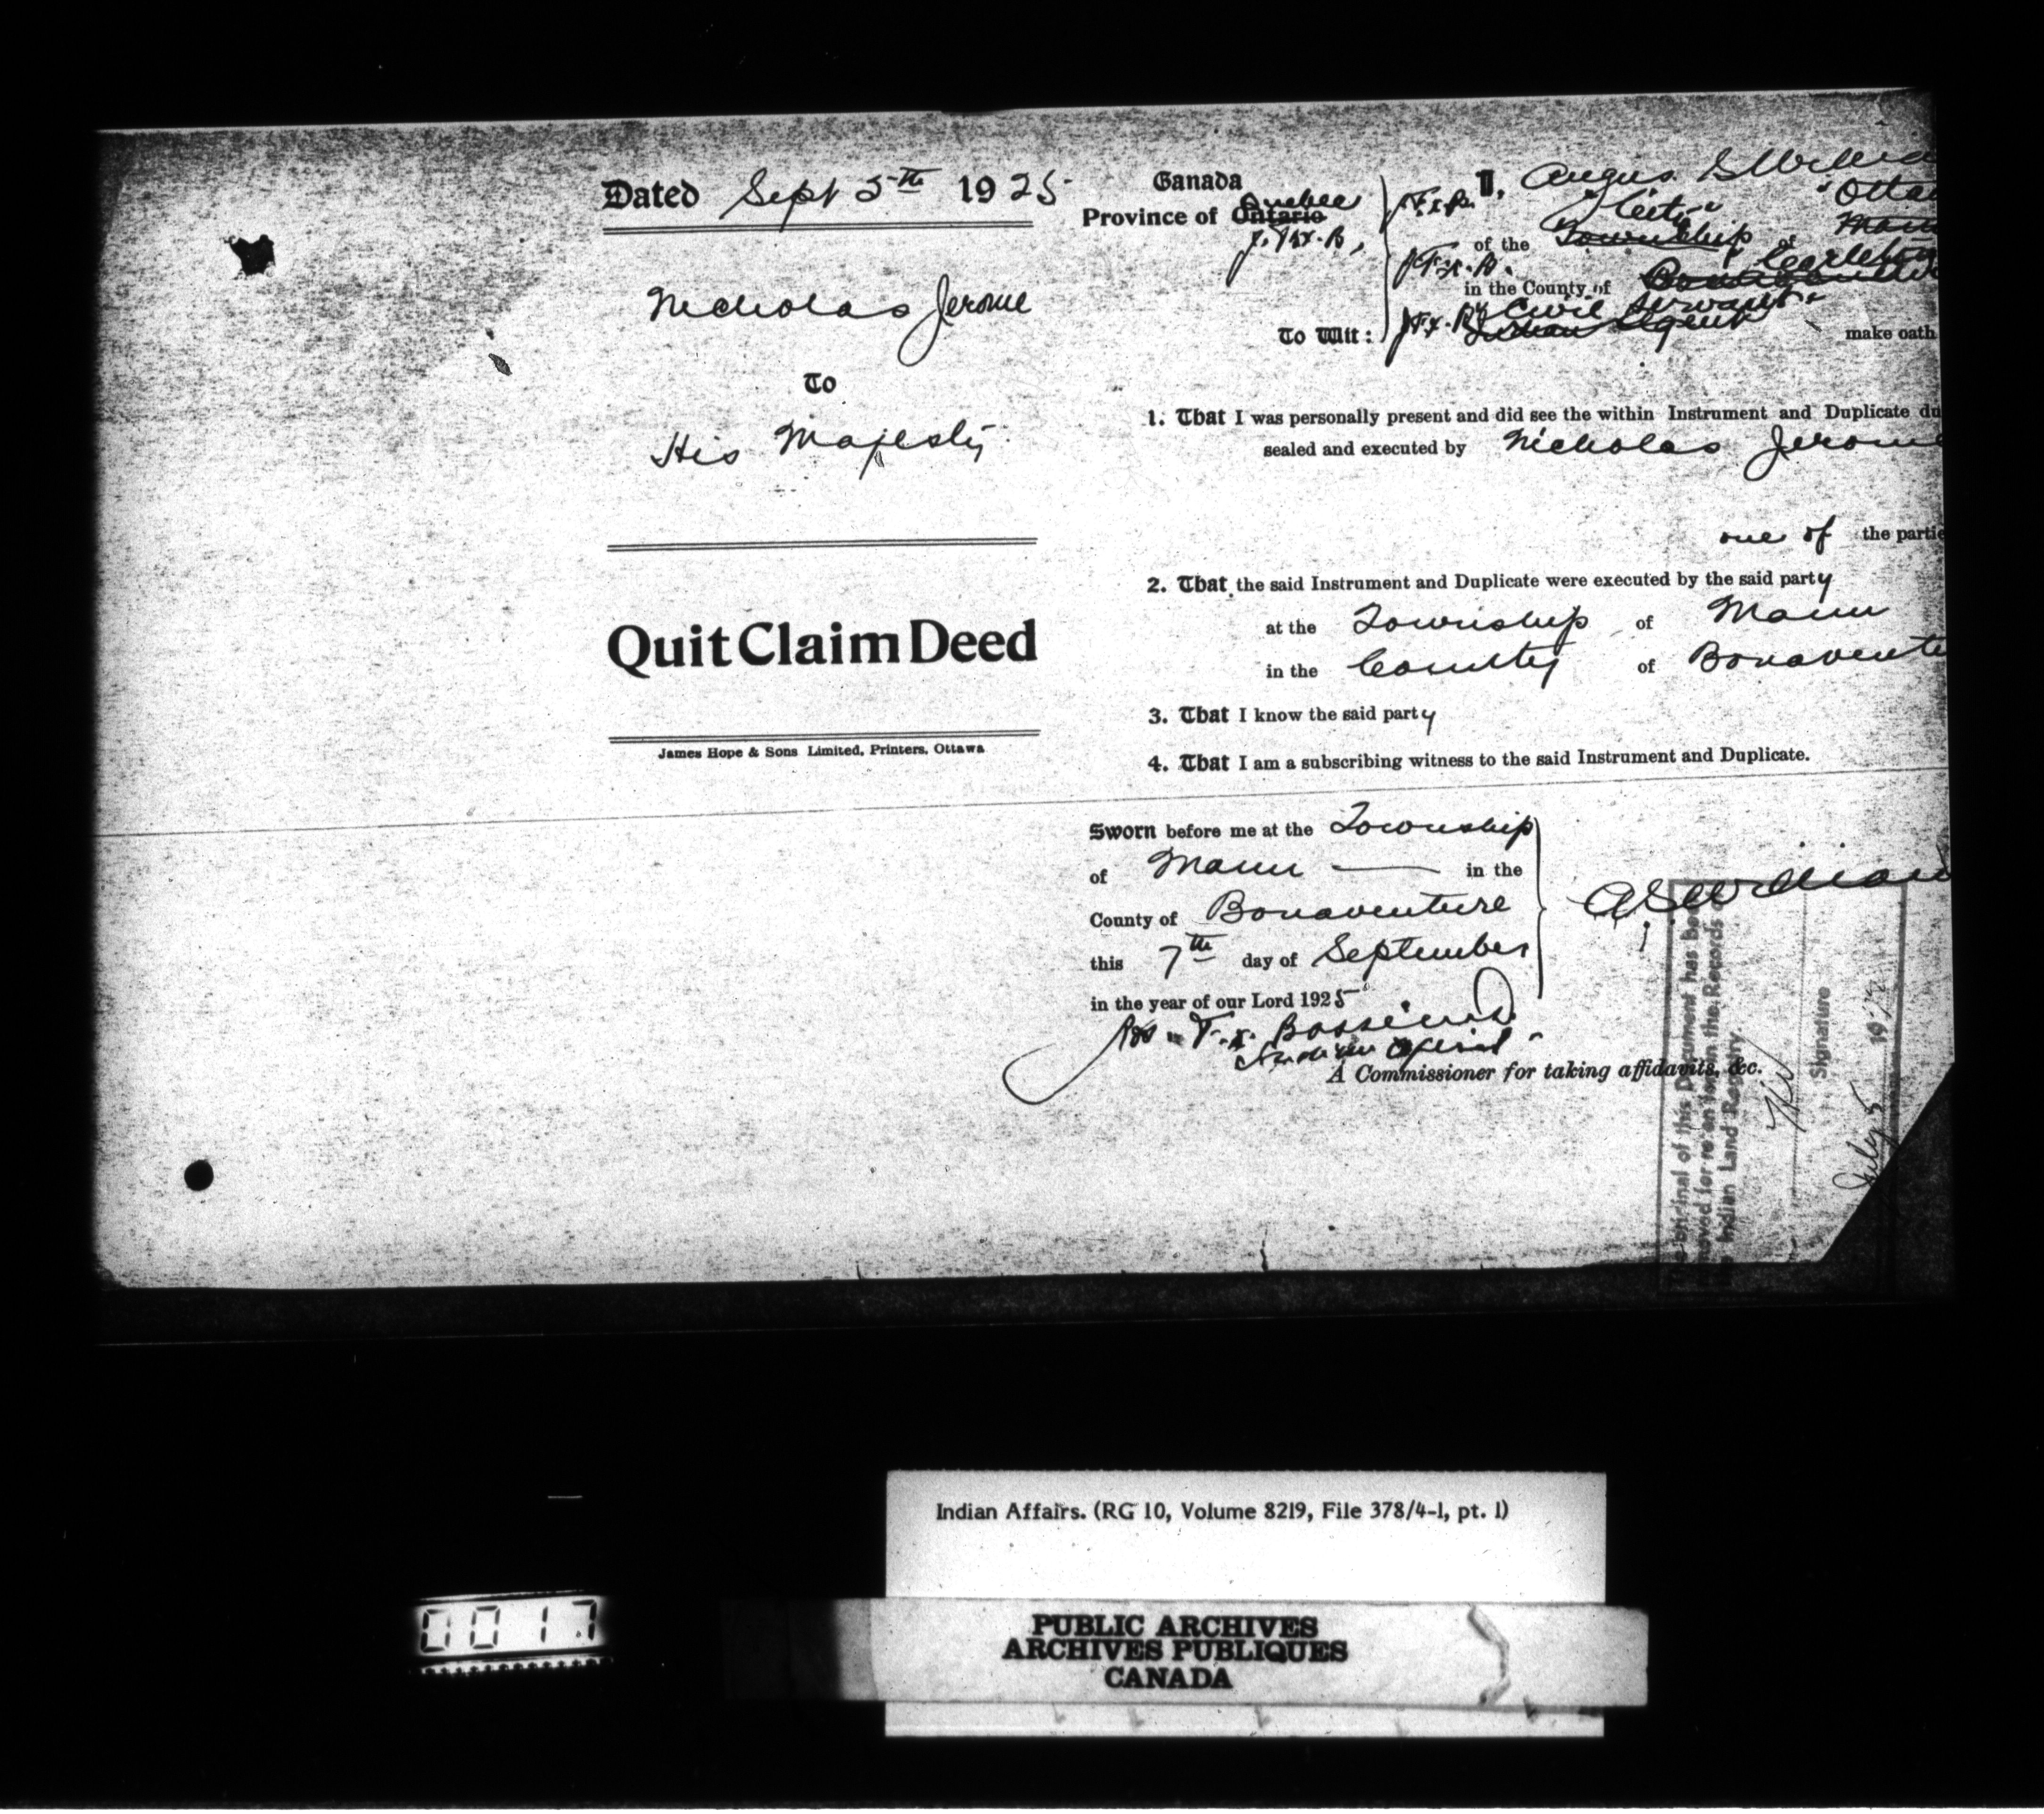 Dated Sept 5th 1925
Nicholas Jerome
To
His Majesty
Quit Claim Deed
James Hope & Sons Limited, Printers, Ottawa
Canada
Province of Ontario Quebec
J. F.x.B.
To Wit:
J.F.x.B. I, Angus S
of the Township City of
J.F.x.B. in the County of Carleton
J.F.x.B. Indian Agent Civil Servant make oath
1. That I was personally present and did see the within Instrument and Duplicate du
sealed and executed by Nicholas Jerome
one of the partie
2. That the said Instrument and Duplicate were executed by the said party
at the Township of Mann
in the County of Bonaventu
3. That I know the said party
4. That I am a subscribing witness to the said Instrument and Duplicate.
Sworn before me at the Township
of Mann in the
County of Bonaventure
this 7th day of September
in the year of our Lord 1925
Jos. F.x. Bossé
Indian Agent
A Commissioner for taking affidavits, &c.
A S Williams
The original of this Document has been
removed for re-entry in the Records
Indian Land Registry.
Signature
July 5 19
Indian Affairs. (RG 10, Volume 8219, File 378/4-1, pt. 1)
0017
PUBLIC ARCHIVES
ARCHIVES PUBLIQUES
CANADA